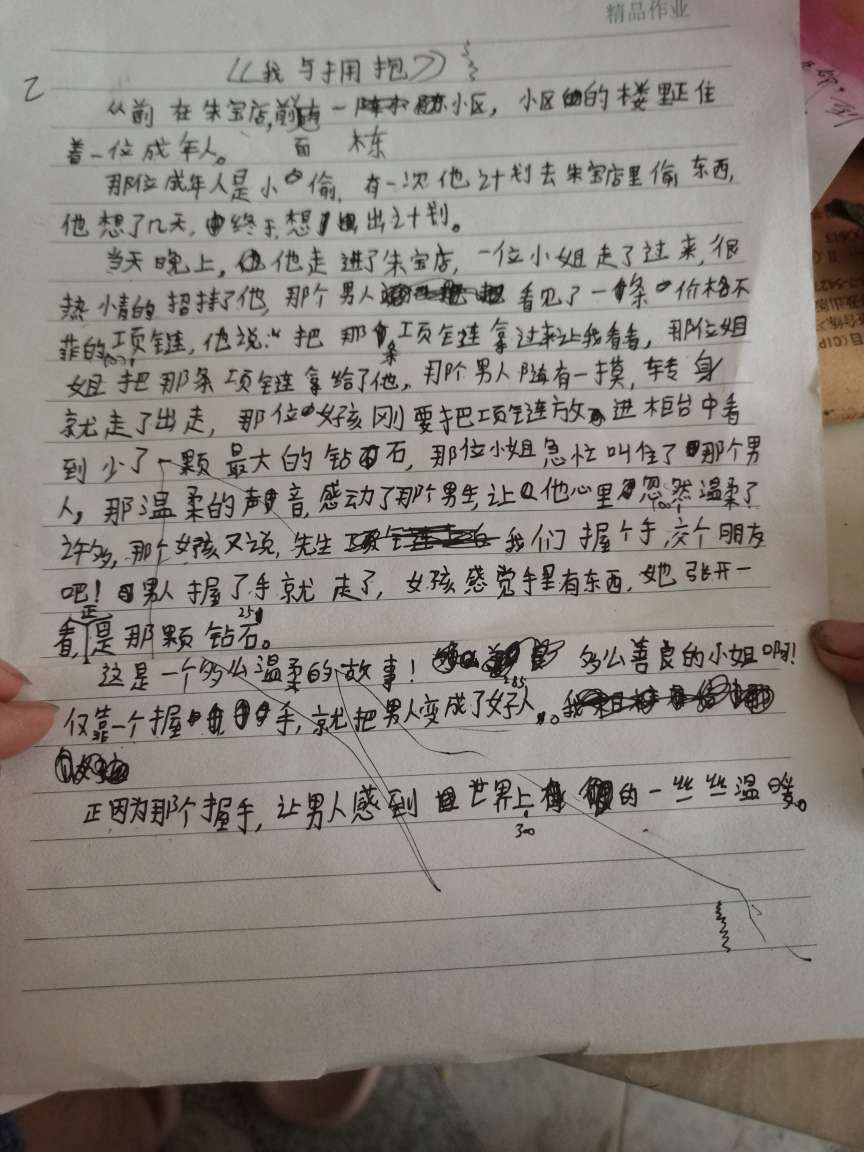 精品作业
乙
《我与拥抱》
从前在朱宝店,前面有一栋小区,小区的楼里正住
着一位成年人。
那位成年人是小偷,有一次他计划去朱宝店里偷东西,
他想了几天,终于想出计划。
当天晚上,他走进了朱宝店,一位小姐走了过来,很
热情的招待了他,那个男人看见了一条价格不
菲的项链,他说:“把那条项链拿过来让我看看,那位姐
姐把那条项链拿给了他,那个男人随有一摸,转身
就走了出走,那位女孩刚要把项链放进柜台中看
到少了一颗最大的钻石,那位小姐急忙叫住了那个男
人,那温柔的声音,感动了那个男生,让他心里忽然温柔了
许多,那个女孩又说,先生我们握个手,交个朋友
吧!男人握了手就走了,女孩感觉手里有东西,她张开一
看,正是那颗钻石。
这是一个多么温柔的故事!多么善良的小姐啊!
仅靠一个握手,就把男人变成了好人。
正因为那个握手,让男人感到世界上的一丝丝温暖。
300